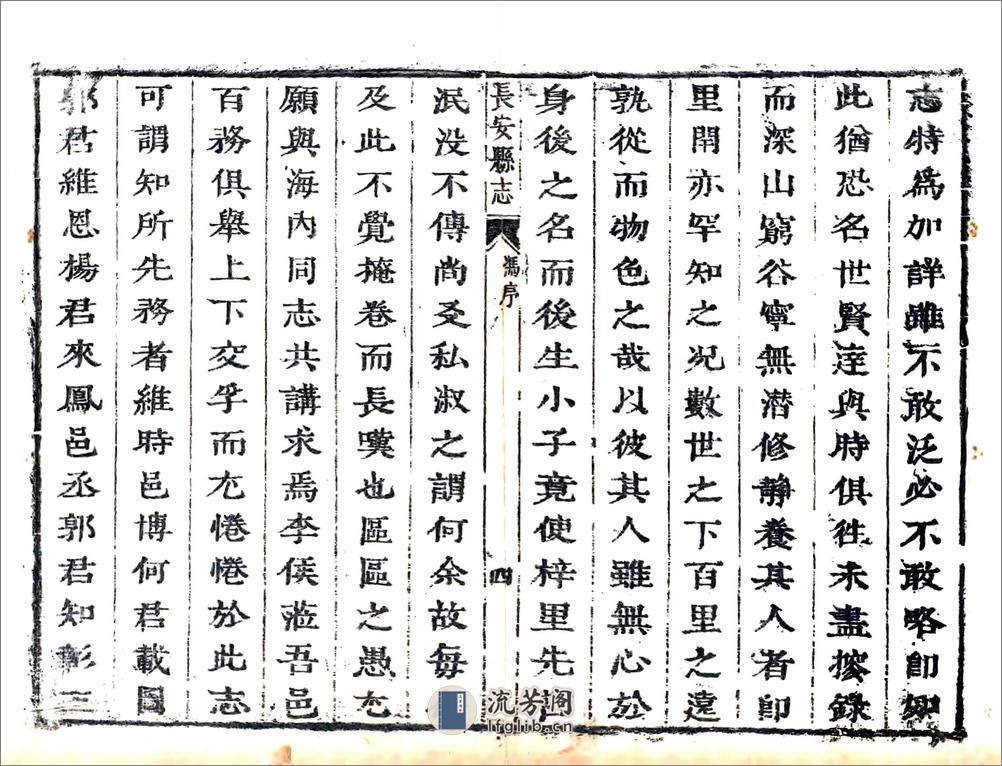 志特爲加詳雖不敢泛必不敢略卽如
此猶恐名世賢達與時俱徃未盡搜錄
而深山窮谷寧無潜修靜養其人者卽
里閈亦罕知之况數世之下百里之遠
孰從而物色之哉以彼其人雖無心於
身後之名而後生小子竟使梓里先
長安縣志 馮序 四
泯没不傳尚爻私淑之謂何余故每
及此不覺掩卷而長嘆也區區之愚尤
願與海內同志共講求焉李侯蒞吾邑
百務俱舉上下交孚而尤惓惓於此志
可謂知所先務者維時邑博何君載圖
郭君維恩楊君來鳳邑丞郭君知彰三
流芳阁
lfglib.cn